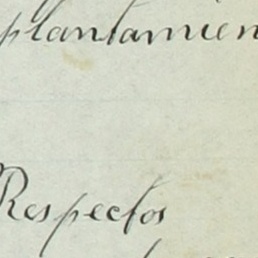 plantamien
Respectos